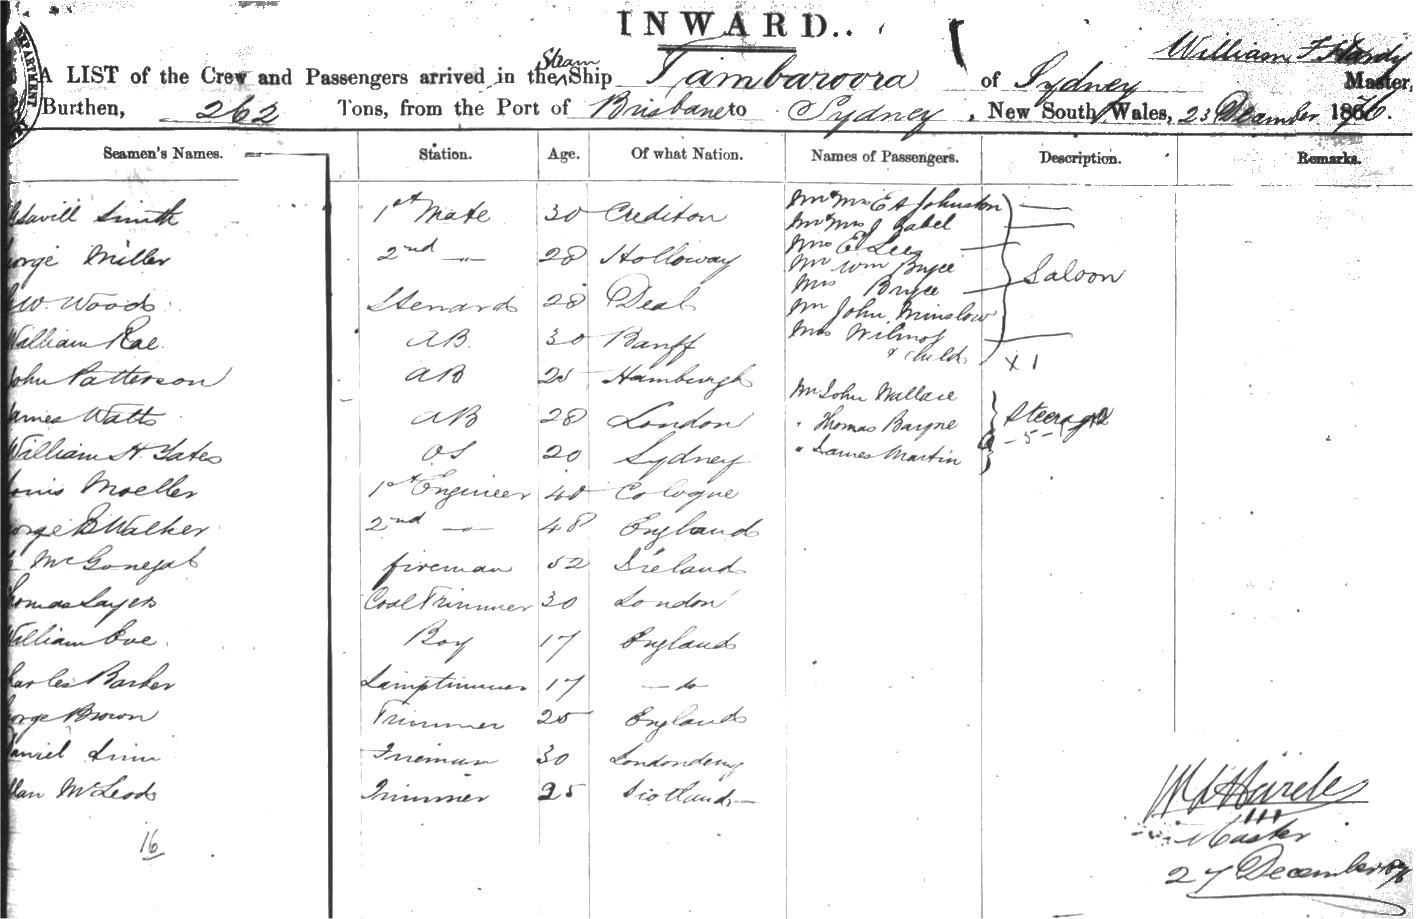 INWARD.
William F Hardy
A LIST of the Crew and Passengers arrived in the Steam Ship Tambaroora of Sydney Master,
Burthen, 262 Tons, from the Port of Brisbane to Sydney, New South Wales, 23 December 1876.
DEPARTMENT
Seamen's Names. Station. Age. Of what Nation. Names of Passengers. Description. Remarks.
Savill Smith 1st Mate 30 Crediton Mr & Mrs E A Johnston
Mr & Mrs J Zabel
orge Miller 2nd -"- 28 Holloway Mrs E Lee
Mr Wm Bryce Saloon
W. Woods Steward 28 Deal Mrs Bryce
Mr John Winslow
William Rae AB 30 Banff Mrs Wilmot
& child X 1
John Patterson AB 25 Hamburgh Mr John Wallace
James Watts AB 28 London " Thomas Bayne Steerage
- 5 -
William H. Yates OS 20 Sydney " James Martin
ouis Moeller 1st Engineer 40 Cologne
orge B Walker 2nd -"- 48 England
McGonegal fireman 52 Ireland
homas Sayers Coal Trimmer 30 London
William Eve Boy 17 England
harles Barker Lamptrimmer 17 - do
orge Brown Trimmer 25 England
Daniel Fireman 30 Londonderry
llan McLeod Trimmer 25 Scotland
16
Master
27 December 1876